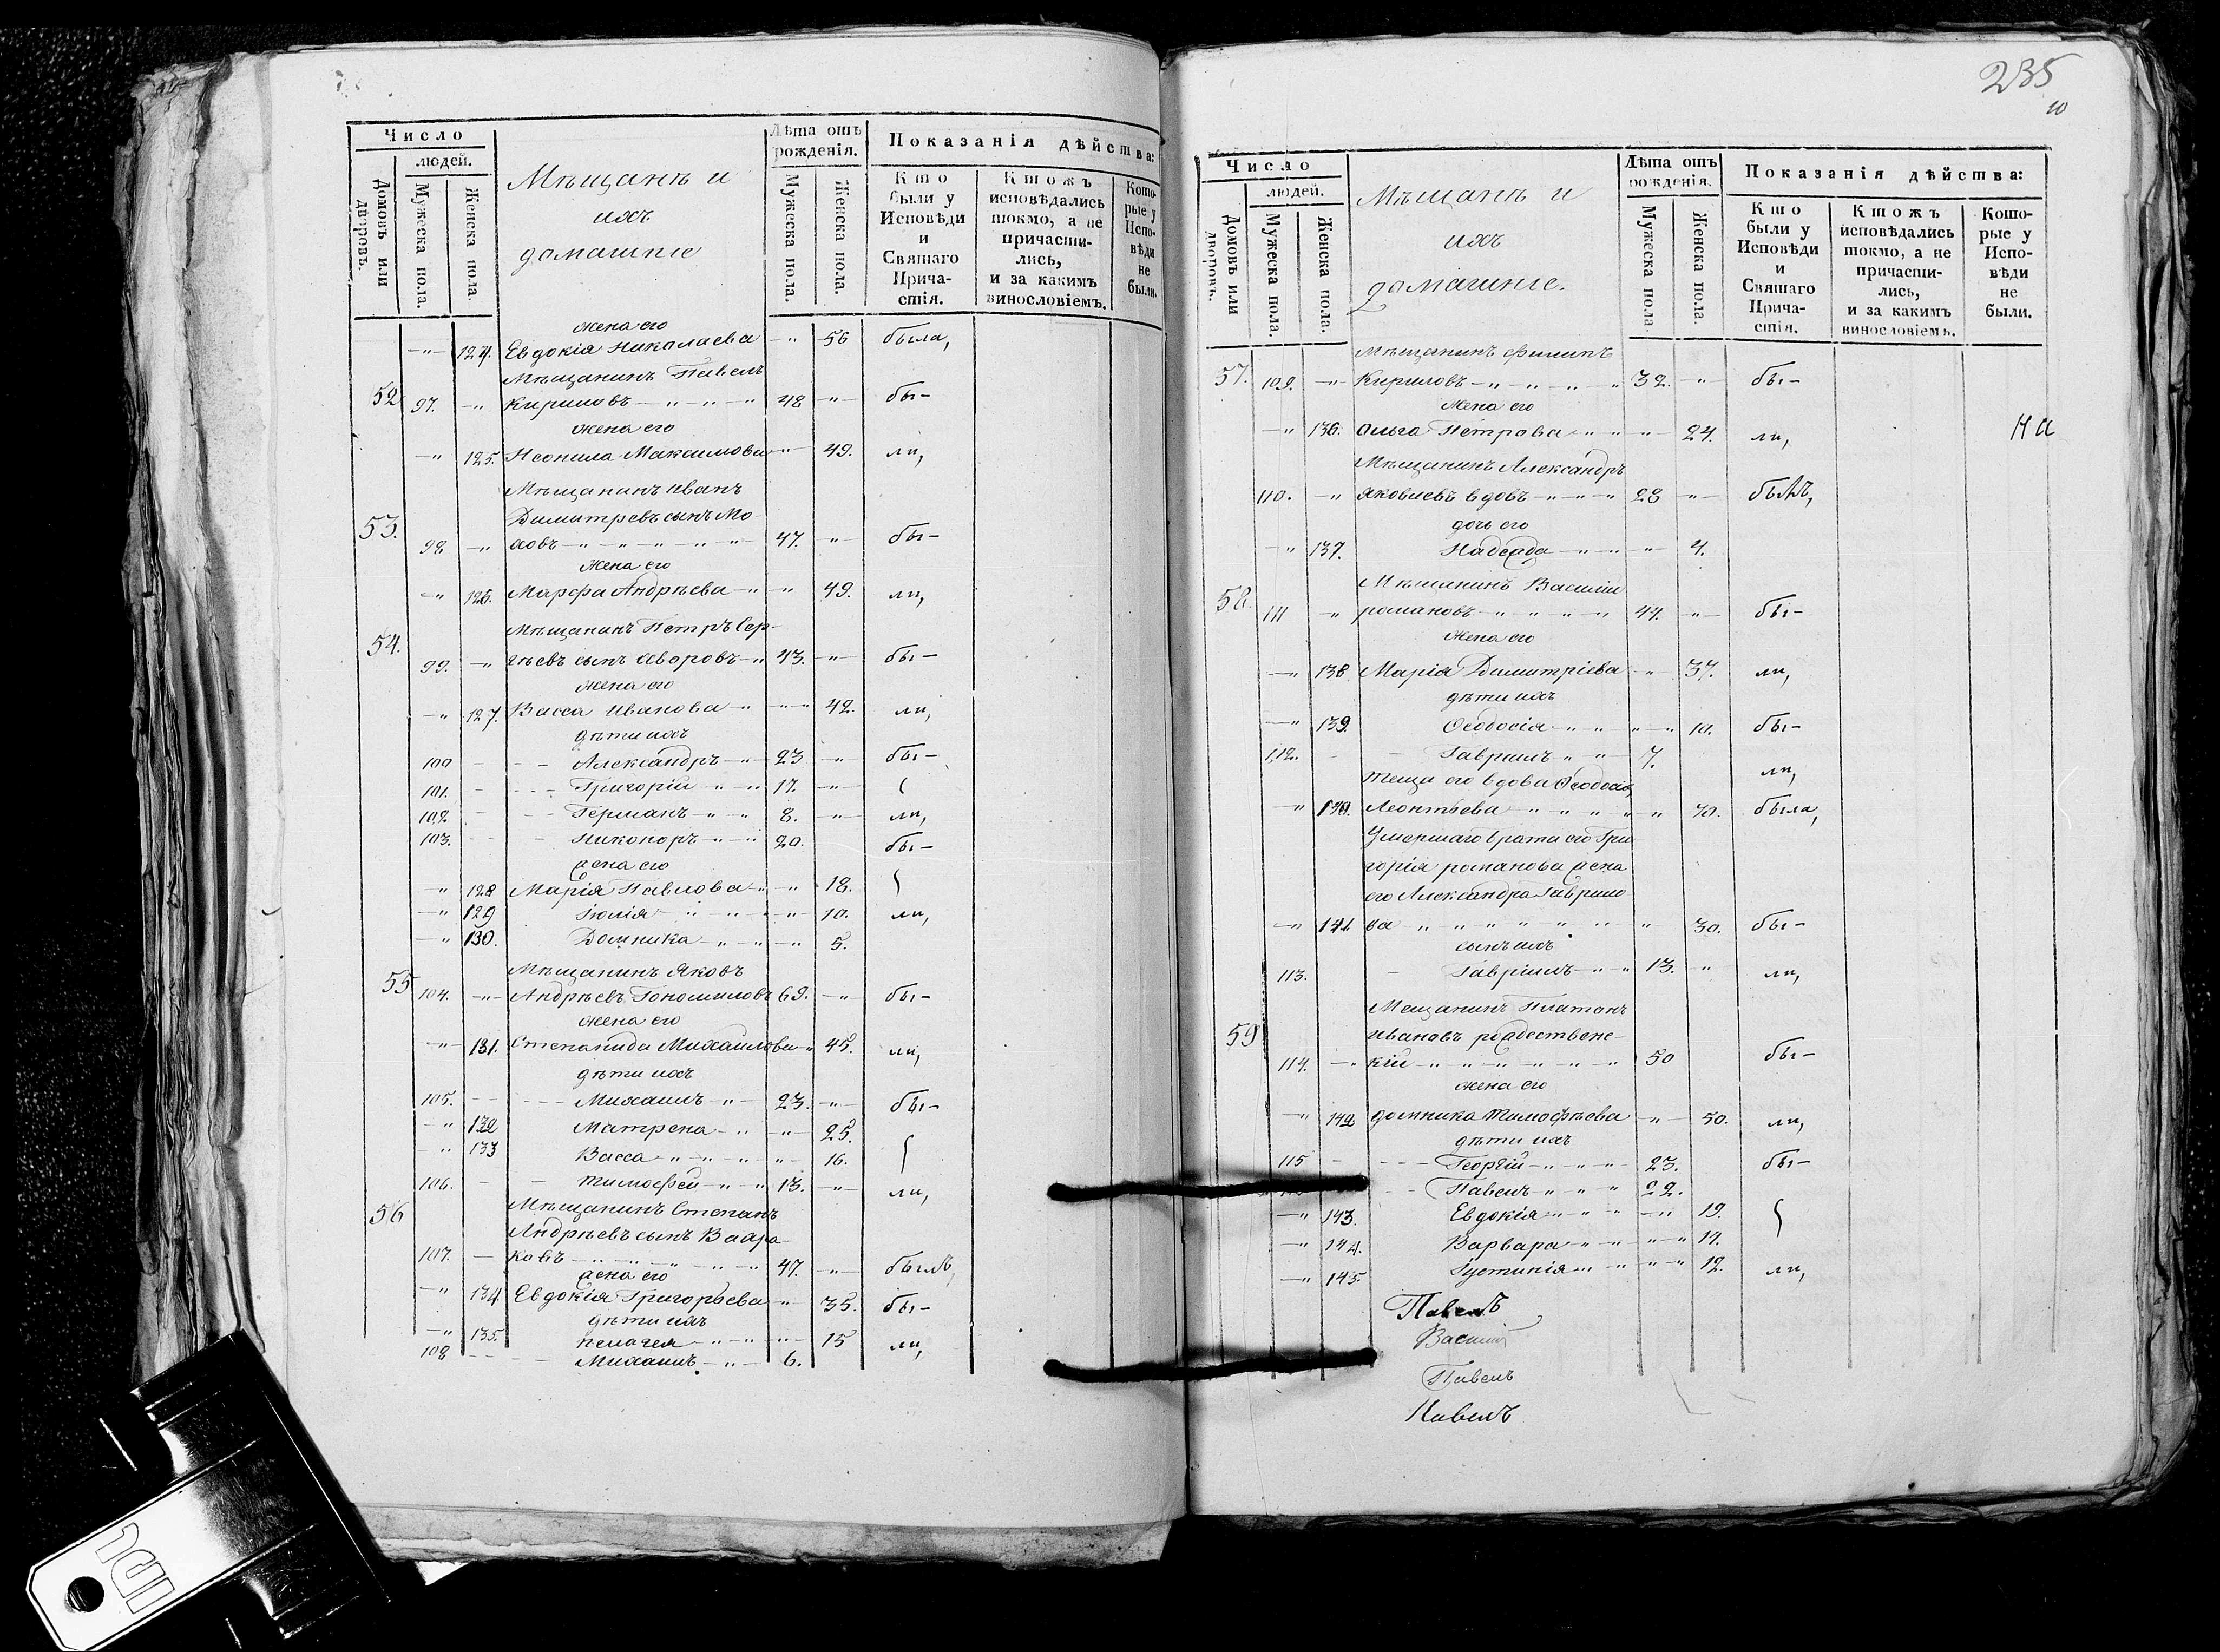 Число
людей.
Домовъ или дворовъ.
Мужеска пола.
Женска пола.
Мѣщанъ и
ихъ
домашніе
Лѣта отъ
рожденія.
Мужеска пола.
Женска пола.
Показанія дѣйства:
Кто
были у
Исповѣди
и
Святаго
Прича-
стія.
Ктожъ
исповѣдались
токмо, а не
причасти-
лись,
и за какимъ
винословіемъ.
Кото-
рые у
Испо-
вѣди
не
были.
жена его
—"— 124. Евдокія Николаева —" 56 была,
Мѣщанинъ Павелъ
52 97. —" Кириловъ —"—"—"—" 48 —"— бы-
жена его
—" 125. Неонила Максимова —"— 49. ли,
Мѣщанинъ Иванъ
Димитревъ сынъ Мо-
53. 98 —" ховъ —"—"—"—"—"— 47. —" бы-
жена его
—" 126. Марфа Андрѣева —" —" 49. ли,
Мѣщанинъ Петръ Сер-
54. 99. —" гѣевъ сынъ —" 43. —"— бы-
жена его
—" 127. Васса Иванова —" —"—" 42. ли,
дѣти ихъ
100 — — — Александръ —" 23 —" бы-
101. — — — Григорій —"—" 17. —"—
102. — — — Германъ —"—" 8. —"— ли,
103. — — Никоноръ —"—" 20. бы-
жена его
—" 128 Марія Павлова —" —" 18.
—" 129 Іюлія —"—"—"— 10. ли,
—" 130. Домника —"—"—"— 5.
Мѣщанинъ Яковъ
55 104. —"— Андрѣевъ 69. —" бы-
жена его
—"— 131. Степанида Михаилова —" 45. ли,
дѣти ихъ
105. — — — — Михаилъ —"— 23. —"— бы-
—" 132 Матрена —"—"—"— 25.
—" 133 Васса —"—"—"—"— 16.
106. — — Тимофей —"—" 13. —"— ли,
Мѣщанинъ Степанъ
56 Андрѣевъ сынъ
107. — ковъ —"—"—"—"—" 47. —"— былъ,
жена его
—" 134 Евдокія Григорьева —" 35. бы-
дѣти ихъ
—" 135. Пелагея —"—"—"— 15 ли,
108 — — — Михаилъ —"— 6.
235
10
Число
людей.
Домовъ или дворовъ.
Мужеска пола.
Женска пола.
Мѣщанъ и
ихъ
домашніе.
Лѣта отъ
рожденія.
Мужеска пола.
Женска пола.
Показанія дѣйства:
Кто
были у
Исповѣди
и
Святаго
Прича-
стія.
Ктожъ
исповѣдались
токмо, а не
причасти-
лись,
и за какимъ
винословіемъ.
Кото-
рые у
Испо-
вѣди
не
были.
Мѣщанинъ Филипъ
57. 109. —"— Кириловъ —"—"—"—" 32. —"— бы-
жена его
—" 136. Ольга Петрова —"—" —"— 24. ли, На
Мѣщанинъ Александръ
110. —" Яковлевъ вдовъ —"—"—" 28 —"— былъ,
дочь его
—" 137. Надежда —"—" —"— 4.
Мѣщанинъ Василій
58. 111 " романовъ —"—"—"—" 44. —"— бы-
жена его
—" 138 Марія Димитріева —"— 37. ли,
дѣти ихъ
—" 139. Ѳеодосія —"—"—"—" 10. бы-
112. — — Гаврилъ —"—" 7. ли,
теща его вдова Ѳеодосія
—" 140. Леонтьева —"—"—"—" 70. была,
Умершаго брата его Гри-
горія романова жена
его Александра Гаврило-
—" 141 ва —"—"—"—"—"— " 30. бы-
сынъ ихъ
113. — Гавріилъ —"—" 13. —" ли,
Мещанинъ Платонъ
59 Ивановъ рождествене-
114. —" кій —"—"—"—"—"—" 50 бы-
жена его
—" 142 домника Тимофѣева —"— 50. ли,
дѣти ихъ
115 — — — — Георгій —"—"—" 23. бы-
— — Павелъ —"—"—" 22.
—" 143. Евдокія —"—"—"—" 19.
—" 144. Варвара —"—"—"—" 14.
—" 145. Іустинія —"—"—"—" 12. ли,
Павелъ
Василій
Павелъ
Павелъ